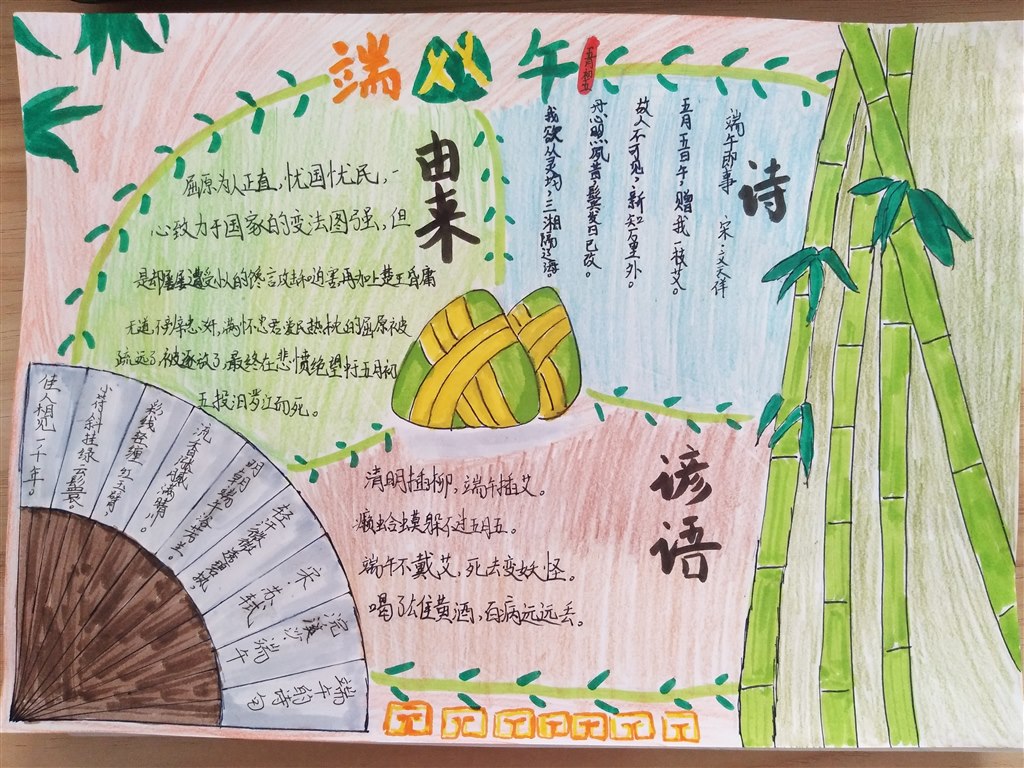 端午
五月初五
由来
屈原为人正直,忧国忧民,一
心致力于国家的变法图强,但
是却屡屡遭受小人的谗言攻击和迫害再加上楚王昏庸
无道,不辨忠奸,满怀忠君爱民热忱的屈原被
疏远了,被逐放了,最终在悲愤绝望中于五月初
五投汨罗江而死。
诗
端午即事 宋·文天佯
五月五日午,赠我一枝艾。
故人不可见,新知万里外。
丹心照夙昔,鬓发日已改。
我欲从灵均,三湘隔辽海。
谚语
清明插柳,端午插艾。
癞蛤蟆躲不过五月五。
端午不戴艾,死去变妖怪。
喝了雄黄酒,百病远远丢。
端午的诗句
浣溪沙·端午
宋·苏轼
轻汗微微透碧纨,
明朝端午浴芳兰。
流香涨腻满晴川。
彩线轻缠红玉臂,
小符斜挂绿云鬟。
佳人相见一千年。